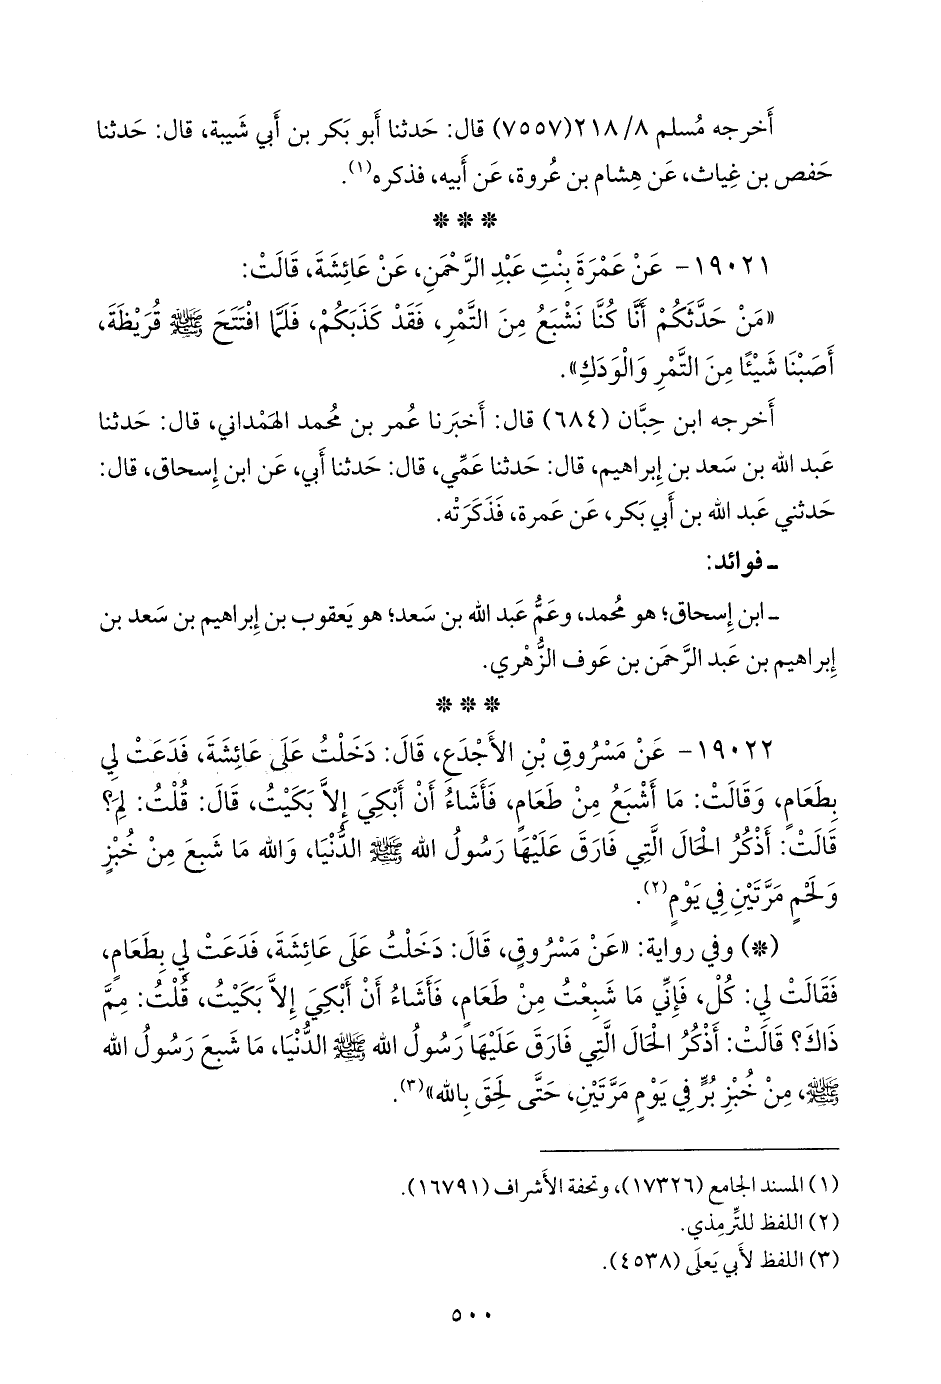 أَخرجه مُسلم ٨/ ٢١٨(٧٥٥٧) قال: حَدثنا أَبو بَكر بن أَبي شَيبة، قال: حَدثنا
حَفص بن غِياث، عَن هِشام بن عُروة، عَن أَبيه، فذكره(١).
* * *
١٩٠٢١- عَنْ عَمْرَةَ بِنْتِ عَبْدِ الرَّحْمَنِ، عَنْ عَائِشَةَ، قَالَتْ:
«مَنْ حَدَّثَكُمْ أَنَّا كُنَّا نَشْبَعُ مِنَ التَّمْرِ، فَقَدْ كَذَبَكُمْ، فَلَمَّا افْتَتَحَ ﷺ قُرَيْظَةَ،
أَصَبْنَا شَيْئًا مِنَ التَّمْرِ وَالْوَدَكِ».
أَخرجه ابن حِبَّان (٦٨٤) قال: أَخبَرنا عُمر بن مُحمد الهَمْداني، قال: حَدثنا
عَبد الله بن سَعد بن إِبراهيم، قال: حَدثنا عَمِّي، قال: حَدثنا أَبي، عَن ابن إِسحاق، قال:
حَدثني عَبد الله بن أَبي بَكر، عَن عَمرة، فَذَكَرَتْه.
ـ فوائد:
ـ ابن إِسحاق؛ هو مُحمد، وعَمُّ عَبد الله بن سَعد؛ هو يَعقوب بن إِبراهيم بن سَعد بن
إِبراهيم بن عَبد الرَّحمَن بن عَوف الزُّهْري.
* * *
١٩٠٢٢- عَنْ مَسْرُوقِ بْنِ الأَجْدَعِ، قَالَ: دَخَلْتُ عَلَى عَائِشَةَ، فَدَعَتْ لِي
بِطَعَامٍ، وَقَالَتْ: مَا أَشْبَعُ مِنْ طَعَامٍ، فَأَشَاءُ أَنْ أَبْكِيَ إِلاَّ بَكَيْتُ، قَالَ: قُلْتُ: لِمَ؟
قَالَتْ: أَذْكُرُ الْحَالَ الَّتِي فَارَقَ عَلَيْهَا رَسُولُ الله ﷺ الدُّنْيَا، وَالله مَا شَبِعَ مِنْ خُبْزٍ
وَلَحْمٍ مَرَّتَيْنِ فِي يَوْمٍ(٢).
(*) وفي رواية: «عَنْ مَسْرُوقٍ، قَالَ: دَخَلْتُ عَلَى عَائِشَةَ، فَدَعَتْ لِي بِطَعَامٍ،
فَقَالَتْ لِي: كُلْ، فَإِنِّي مَا شَبِعْتُ مِنْ طَعَامٍ، فَأَشَاءُ أَنْ أَبْكِيَ إِلاَّ بَكَيْتُ، قُلْتُ: مِمَّ
ذَاكَ؟ قَالَتْ: أَذْكُرُ الْحَالَ الَّتِي فَارَقَ عَلَيْهَا رَسُولُ الله ﷺ الدُّنْيَا، مَا شَبِعَ رَسُولُ الله
ﷺ، مِنْ خُبْزِ بُرٍّ فِي يَوْمٍ مَرَّتَيْنِ، حَتَّى لَحِقَ بِالله»(٣).
(١) المسند الجامع (١٧٣٢٦)، وتحفة الأَشراف (١٦٧٩١).
(٢) اللفظ للتِّرمِذي.
(٣) اللفظ لأَبي يَعلَى (٤٥٣٨).
٥٠٠